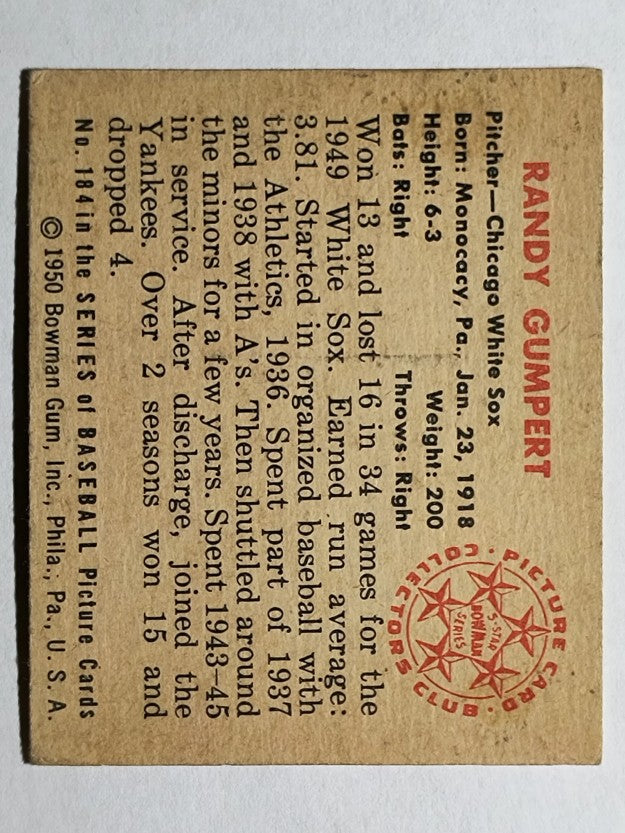 RANDY GUMPERT
Pitcher—Chicago White Sox
Born: Monocacy, Pa., Jan. 23, 1918
Height: 6-3 Weight: 200
Bats: Right Throws: Right
Won 13 and lost 16 in 34 games for the
1949 White Sox. Earned run average:
3.81. Started in organized baseball with
the Athletics, 1936. Spent part of 1937
and 1938 with A's. Then shuttled around
the minors for a few years. Spent 1943-45
in service. After discharge, joined the
Yankees. Over 2 seasons won 15 and
dropped 4.
No. 184 in the SERIES of BASEBALL Picture Cards
© 1950 Bowman Gum, Inc., Phila., Pa., U. S. A.
PICTURE CARD
COLLECTORS CLUB
5-STAR
BOWMAN
SERIES